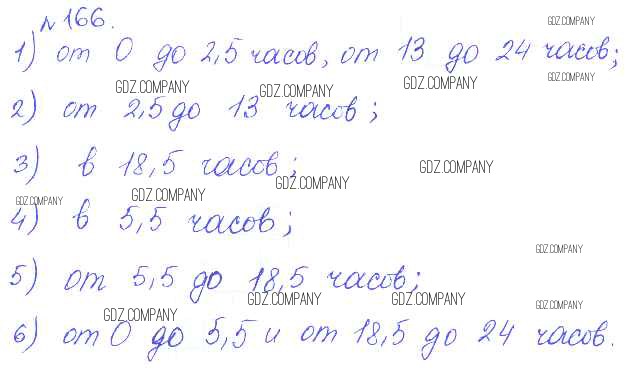 №166.
GDZ.COMPANY
1) от 0 до 2,5 часов, от 13 до 24 часов;
GDZ.COMPANY GDZ.COMPANY GDZ.COMPANY GDZ.COMPANY
2) от 2,5 до 13 часов;
3) в 18,5 часов;
GDZ.COMPANY GDZ.COMPANY
GDZ.COMPANY GDZ.COMPANY
4) в 5,5 часов;
GDZ.COMPANY
5) от 5,5 до 18,5 часов;
GDZ.COMPANY GDZ.COMPANY GDZ.COMPANY GDZ.COMPANY
6) от 0 до 5,5 и от 18,5 до 24 часов.